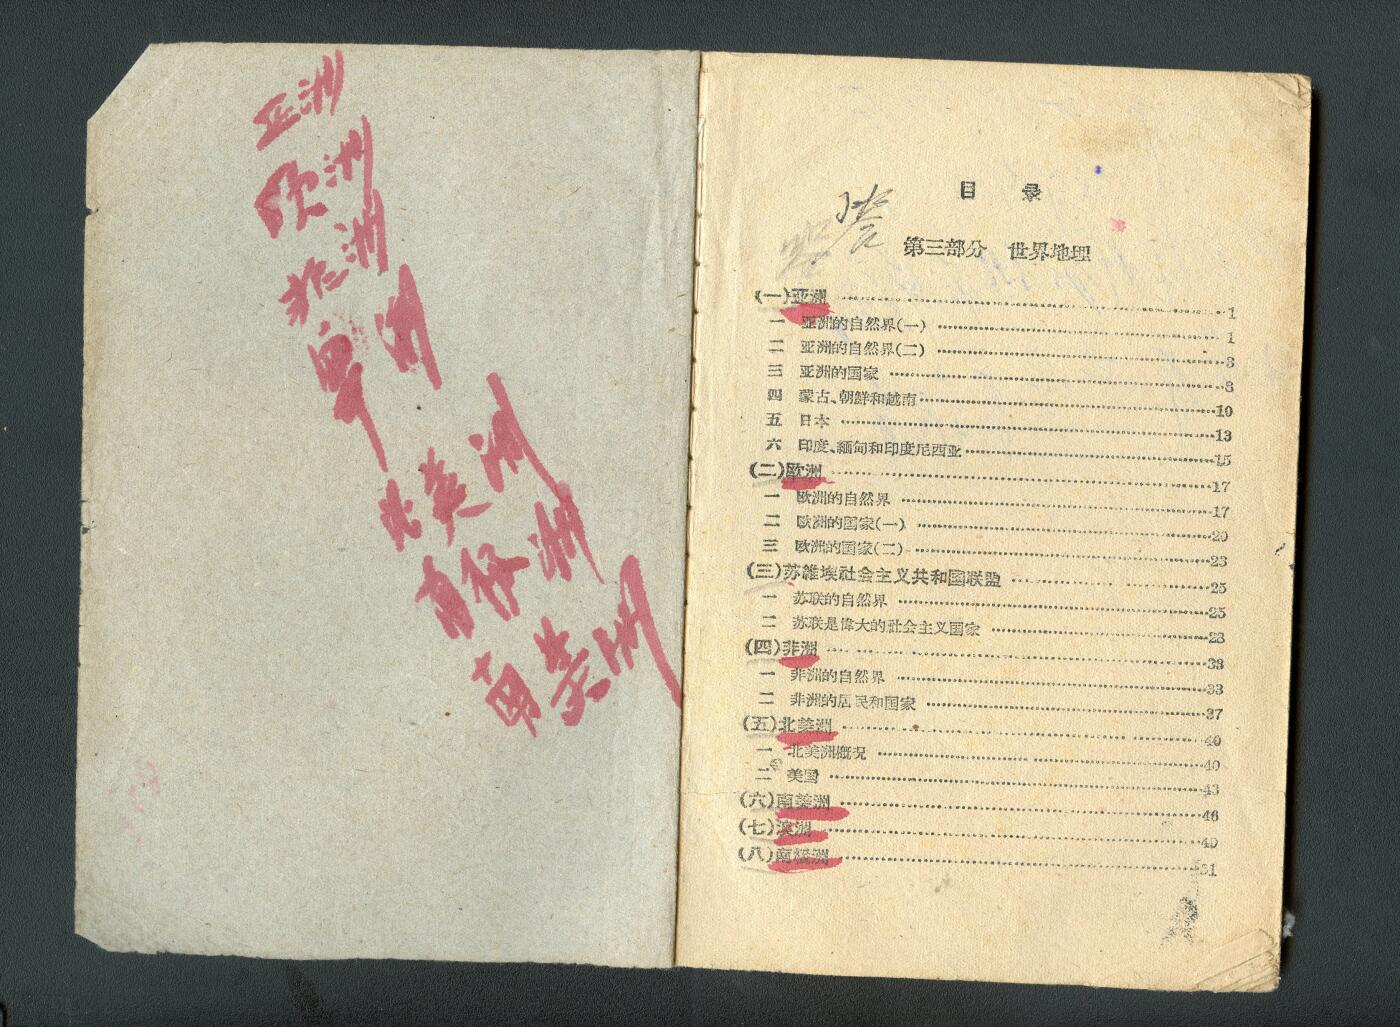 亚洲
欧洲
非洲
洲
北美洲
南极洲
南美洲
目 录
第三部分 世界地理
(一)亚洲 1
一 亚洲的自然界(一) 1
二 亚洲的自然界(二) 3
三 亚洲的国家 8
四 蒙古、朝鮮和越南 10
五 日本 13
六 印度、緬甸和印度尼西亚 15
(二)欧洲 17
一 欧洲的自然界 17
二 欧洲的国家(一) 20
三 欧洲的国家(二) 23
(三)苏維埃社会主义共和国联盟 25
一 苏联的自然界 25
二 苏联是偉大的社会主义国家 28
(四)非洲 33
一 非洲的自然界 33
二 非洲的居民和国家 37
(五)北美洲 40
一 北美洲概况 40
二 美国 43
(六)南美洲 46
(七)澳洲 49
(八)南极洲 51